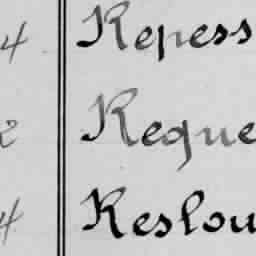 4 Kepess
2 Keque
4 Keslou